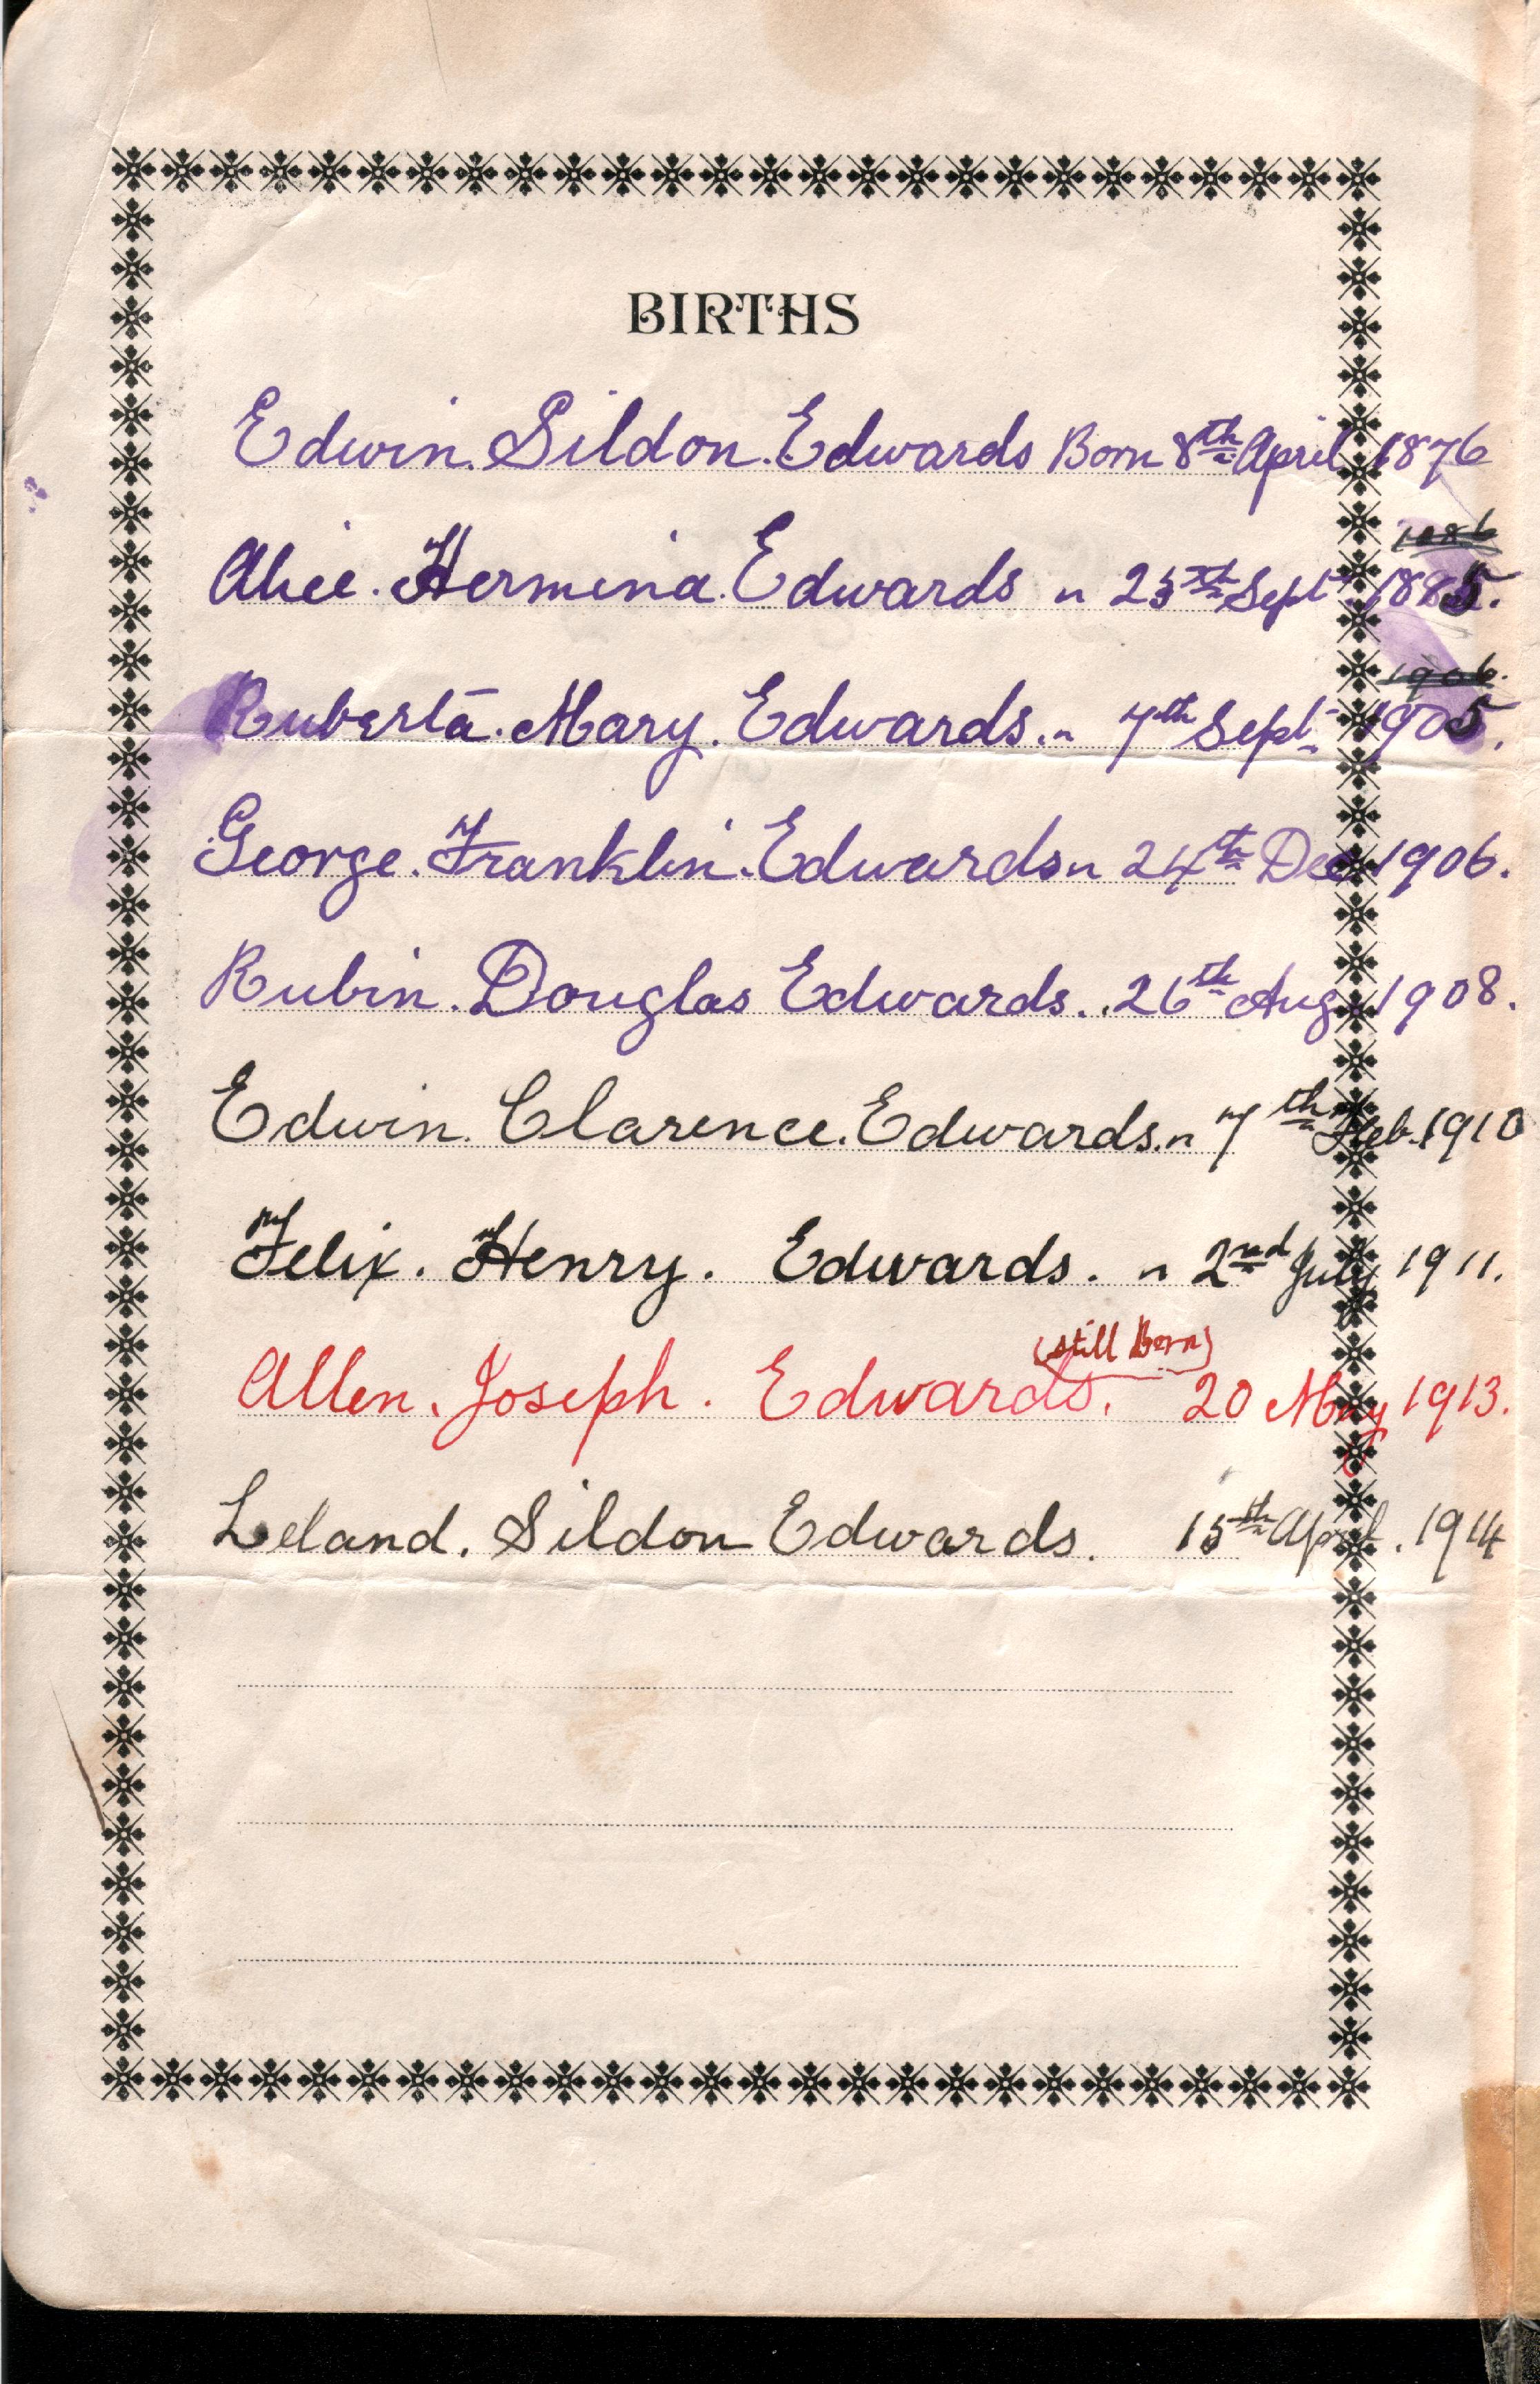 BIRTHS
Edwin. Sildon. Edwards Born 8th April 1876
1886
Alice. Hermina. Edwards " 25th Sept 1885.
1906.
Ruberta. Mary. Edwards. " 7th Sept 1905.
George. Franklin. Edwards " 24th Dec 1906.
Rubin. Douglas Edwards. . 26th Aug 1908.
Edwin. Clarence. Edwards. " 7th Feb. 1910
Felix. Henry. Edwards. " 2nd July 1911.
(still Born)
Allen. Joseph. Edwards. 20 May 1913.
Leland. Sildon Edwards. 15th April. 1914